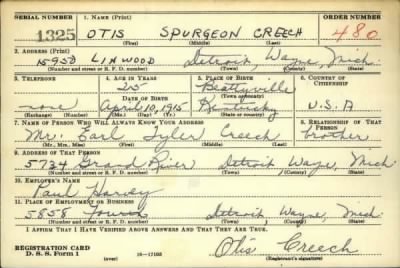 SERIAL NUMBER 1. NAME (Print) ORDER NUMBER
1325 OTIS SPURGEON CREECH 480
(First) (Middle) (Last)
2. ADDRESS (Print)
15950 LINWOOD Detroit, Wayne, Mich.
(Number and street or R. F. D. number) (Town) (County) (State)
3. TELEPHONE 4. AGE IN YEARS 5. PLACE OF BIRTH 6. COUNTRY OF CITIZENSHIP
25 Beattyville
DATE OF BIRTH (Town or county)
none April 10, 1915 Kentucky U.S.A
(Mo.) (Day) (Yr.) (State or country)
7. NAME OF PERSON WHO WILL ALWAYS KNOW YOUR ADDRESS 8. RELATIONSHIP OF THAT PERSON
Mr. Earl Tyler Creech brother
(Mr., Mrs., Miss) (First) (Middle) (Last)
9. ADDRESS OF THAT PERSON
5734 Grand River Detroit Wayne, Mich
(Number and street or R. F. D. number) (Town) (County) (State)
10. EMPLOYER'S NAME
Paul Harvey
11. PLACE OF EMPLOYMENT OR BUSINESS
5858 Fourth Detroit, Wayne, Mich.
(Number and street or R. F. D. number) (Town) (County) (State)
I AFFIRM THAT I HAVE VERIFIED ABOVE ANSWERS AND THAT THEY ARE TRUE.
REGISTRATION CARD
D. S. S. Form 1 (over) 16—17105 Otis Creech
(Registrant's signature)